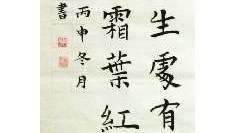 生處有
霜葉紅
丙申冬月
書